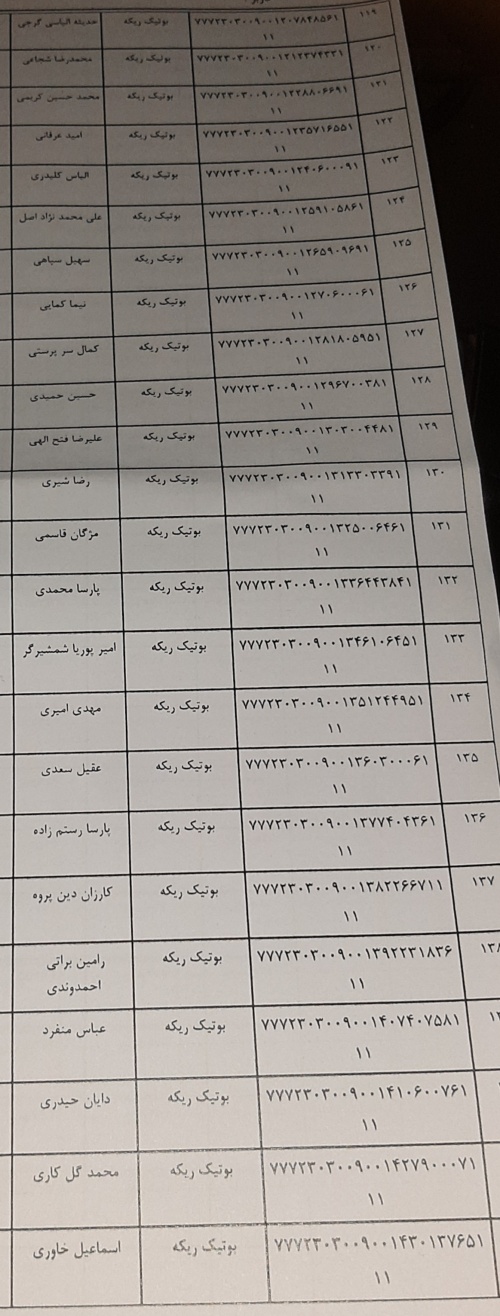 ۱۱۹ ۷۷۷۲۳۰۳۰۰۹۰۰۱۲۰۷۸۴۸۵۶۱ بوتیک ریکه حدیثه الیاسی گرجی
۱۱
۱۲۰ ۷۷۷۲۳۰۳۰۰۹۰۰۱۲۱۲۳۷۴۳۳۱ بوتیک ریکه محمدرضا شجاعی
۱۱
۱۲۱ ۷۷۷۲۳۰۳۰۰۹۰۰۱۲۲۸۸۰۶۶۹۱ بوتیک ریکه محمد حسین کریمی
۱۱
۱۲۲ ۷۷۷۲۳۰۳۰۰۹۰۰۱۲۳۵۷۱۶۵۵۱ بوتیک ریکه امید عرفانی
۱۱
۱۲۳ ۷۷۷۲۳۰۳۰۰۹۰۰۱۲۴۰۶۰۰۰۹۱ بوتیک ریکه الیاس کلیدری
۱۱
۱۲۴ ۷۷۷۲۳۰۳۰۰۹۰۰۱۲۵۹۱۰۵۸۶۱ بوتیک ریکه علی محمد نژاد اصل
۱۱
۱۲۵ ۷۷۷۲۳۰۳۰۰۹۰۰۱۲۶۵۹۰۹۶۹۱ بوتیک ریکه سهیل سپاهی
۱۱
۱۲۶ ۷۷۷۲۳۰۳۰۰۹۰۰۱۲۷۰۶۰۰۰۶۱ بوتیک ریکه نیما کمایی
۱۱
۱۲۷ ۷۷۷۲۳۰۳۰۰۹۰۰۱۲۸۱۸۰۵۹۵۱ بوتیک ریکه کمال سر پرستی
۱۱
۱۲۸ ۷۷۷۲۳۰۳۰۰۹۰۰۱۲۹۶۷۰۰۳۸۱ بوتیک ریکه حسین حمیدی
۱۱
۱۲۹ ۷۷۷۲۳۰۳۰۰۹۰۰۱۳۰۳۰۰۴۴۸۱ بوتیک ریکه علیرضا فتح الهی
۱۱
۱۳۰ ۷۷۷۲۳۰۳۰۰۹۰۰۱۳۱۳۳۰۳۳۹۱ بوتیک ریکه رضا شیری
۱۱
۱۳۱ ۷۷۷۲۳۰۳۰۰۹۰۰۱۳۲۵۰۰۶۴۶۱ بوتیک ریکه مژگان قاسمی
۱۱
۱۳۲ ۷۷۷۲۳۰۳۰۰۹۰۰۱۳۳۶۴۴۳۸۴۱ بوتیک ریکه پارسا محمدی
۱۱
۱۳۳ ۷۷۷۲۳۰۳۰۰۹۰۰۱۳۴۶۱۰۶۴۵۱ بوتیک ریکه امیر پوریا شمشیرگر
۱۱
۱۳۴ ۷۷۷۲۳۰۳۰۰۹۰۰۱۳۵۱۲۴۴۹۵۱ بوتیک ریکه مهدی امیری
۱۱
۱۳۵ ۷۷۷۲۳۰۳۰۰۹۰۰۱۳۶۰۳۰۰۰۶۱ بوتیک ریکه عقیل سعدی
۱۱
۱۳۶ ۷۷۷۲۳۰۳۰۰۹۰۰۱۳۷۷۴۰۴۳۶۱ بوتیک ریکه پارسا رستم زاده
۱۱
۱۳۷ ۷۷۷۲۳۰۳۰۰۹۰۰۱۳۸۲۲۶۶۷۱۱ بوتیک ریکه کارزان دین پروه
۱۱
۱۳۸ ۷۷۷۲۳۰۳۰۰۹۰۰۱۳۹۲۲۳۱۸۳۶ بوتیک ریکه رامین براتی
۱۱ احمدوندی
۷۷۷۲۳۰۳۰۰۹۰۰۱۴۰۷۴۰۷۵۸۱ بوتیک ریکه عباس منفرد
۱۱
۷۷۷۲۳۰۳۰۰۹۰۰۱۴۱۰۶۰۰۷۶۱ بوتیک ریکه دایان حیدری
۱۱
۷۷۷۲۳۰۳۰۰۹۰۰۱۴۲۷۹۰۰۰۷۱ بوتیک ریکه محمد گل کاری
۱۱
۷۷۷۲۳۰۳۰۰۹۰۰۱۴۳۰۱۳۷۶۵۱ بوتیک ریکه اسماعیل خاوری
۱۱